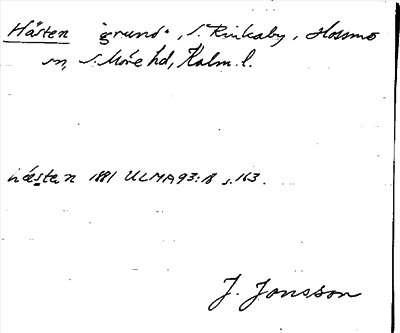 Hästen "grund", S. Rinkaby, Hossmo
sn, S. Möre hd, Kalm. l.
hæsten 1881 ULMA 93:18 s. 163.
J. Jonsson